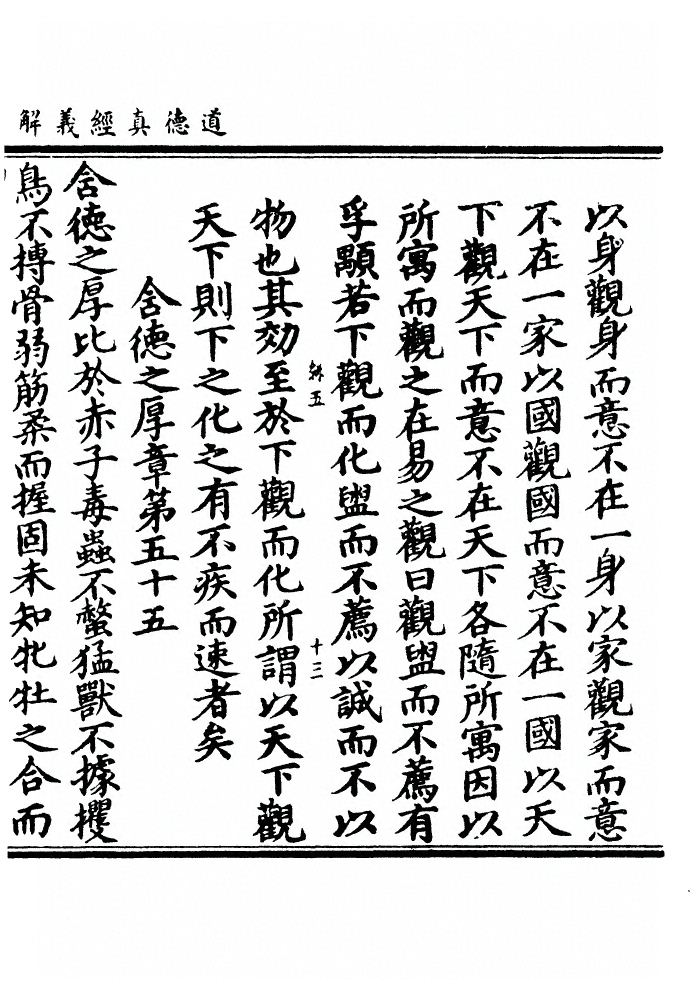 道德真經義解
以身觀身而意不在一身以家觀家而意
不在一家以國觀國而意不在一國以天
下觀天下而意不在天下各隨所寓因以
所寓而觀之在易之觀曰觀盥而不薦有
孚顒若下觀而化盥而不薦以誠而不以
觧五
十二
物也其効至於下觀而化所謂以天下觀
天下則下之化之有不疾而速者矣
含德之厚章第五十五
含德之厚比於赤子毒蟲不螫猛獸不據攫
鳥不搏骨弱筋柔而握固未知牝牡之合而